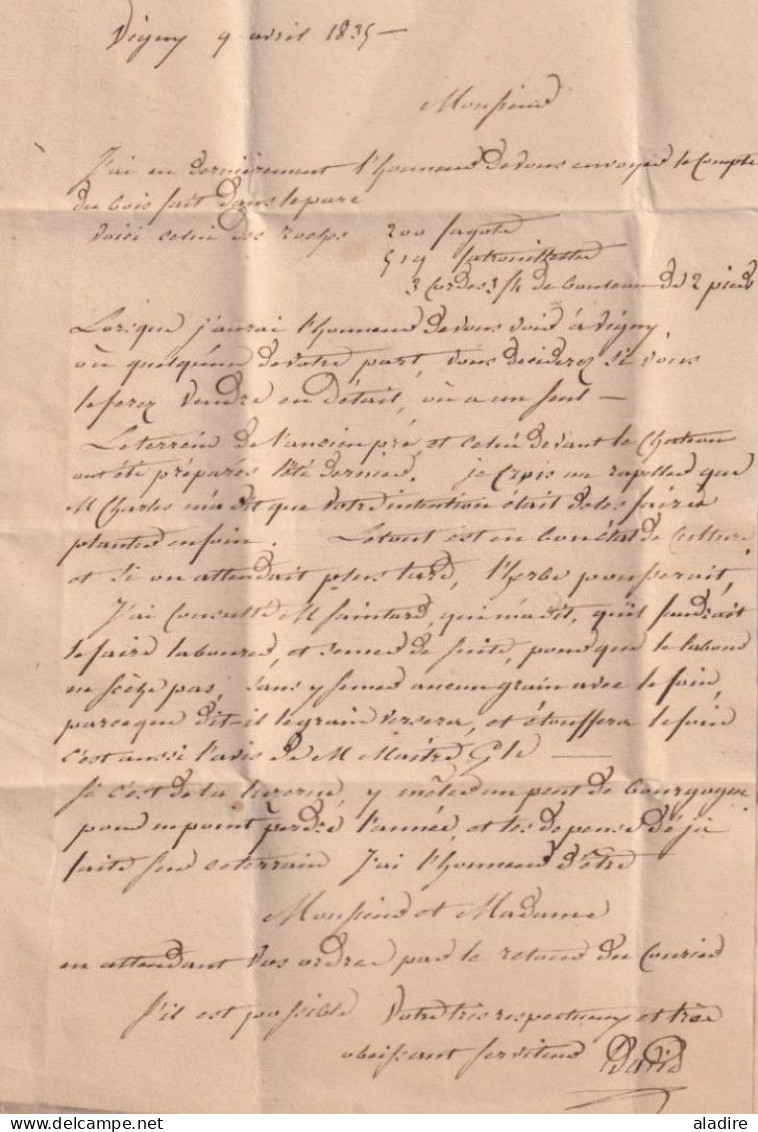 Vigny 9 avril 1835 —
Monsieur
J'ai eu dernièrement l'honneur de vous envoyer le Compte
du bois fait dans le parc
Voici celui des roches 200 fagots
519
3 Cordes 3/4 de bouleau de 2 pieds
Lorsque j'aurai l'honneur de vous voir à Vigny
où quelqu'un de votre part, vous deciderez si vous
le ferez vendre en détail, où a un seul —
Le terrein de l'ancien pré, et celui devant le Chateau
ont été préparés l'été dernier. je Crois me rapeller que
M Charles m'a dit que votre intention était de les faire
planter en foin. Le tout est en bon état de Culture
et si on attendait plus tard, l'herbe pousserait,
J'ai Consulté M Saintard, qui m'a dit, qu'il faudrait
le faire labourer, et semer de suite, pour que le labour
ne sèche pas, sans y semer aucun grain avec le foin,
parceque dit-il le grain versera, et étouffera le foin
c'est aussi l'avis de M Maitre —
Si c'est de la luzerne, y mêler un peut de bourgogne
pour ne point perdre l'année, et les depenses déjà
faite sur ce terrain J'ai l'honneur d'être
Monsieur et Madame
en attendant vos ordres par le retour du Courier
s'il est possible Votre très respectueux et très
obeissant serviteur David
aladire